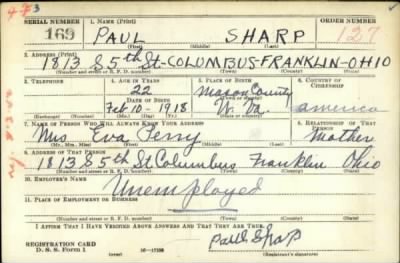 SERIAL NUMBER 1. NAME (Print) ORDER NUMBER
169 PAUL SHARP 127
(First) (Middle) (Last)
2. ADDRESS (Print)
1813 S 5th St-COLUMBUS-FRANKLIN-OHIO
(Number and street or R. F. D. number) (Town) (County) (State)
3. TELEPHONE 4. AGE IN YEARS 5. PLACE OF BIRTH 6. COUNTRY OF CITIZENSHIP
22 Mason County
DATE OF BIRTH (Town or county)
Feb-10-1918 W. Va. America
(Exchange) (Number) (Mo.) (Day) (Yr.) (State or country)
7. NAME OF PERSON WHO WILL ALWAYS KNOW YOUR ADDRESS 8. RELATIONSHIP OF THAT PERSON
Mrs Eva Perry Mother
(Mr., Mrs., Miss) (First) (Middle) (Last)
9. ADDRESS OF THAT PERSON
1813 S 5th St Columbus Franklin Ohio
(Number and street or R. F. D. number) (Town) (County) (State)
10. EMPLOYER'S NAME
Unemployed
11. PLACE OF EMPLOYMENT OR BUSINESS
(Number and street or R. F. D. number) (Town) (County) (State)
I AFFIRM THAT I HAVE VERIFIED ABOVE ANSWERS AND THAT THEY ARE TRUE.
REGISTRATION CARD
D. S. S. Form 1 Paul Sharp
(Registrant's signature)